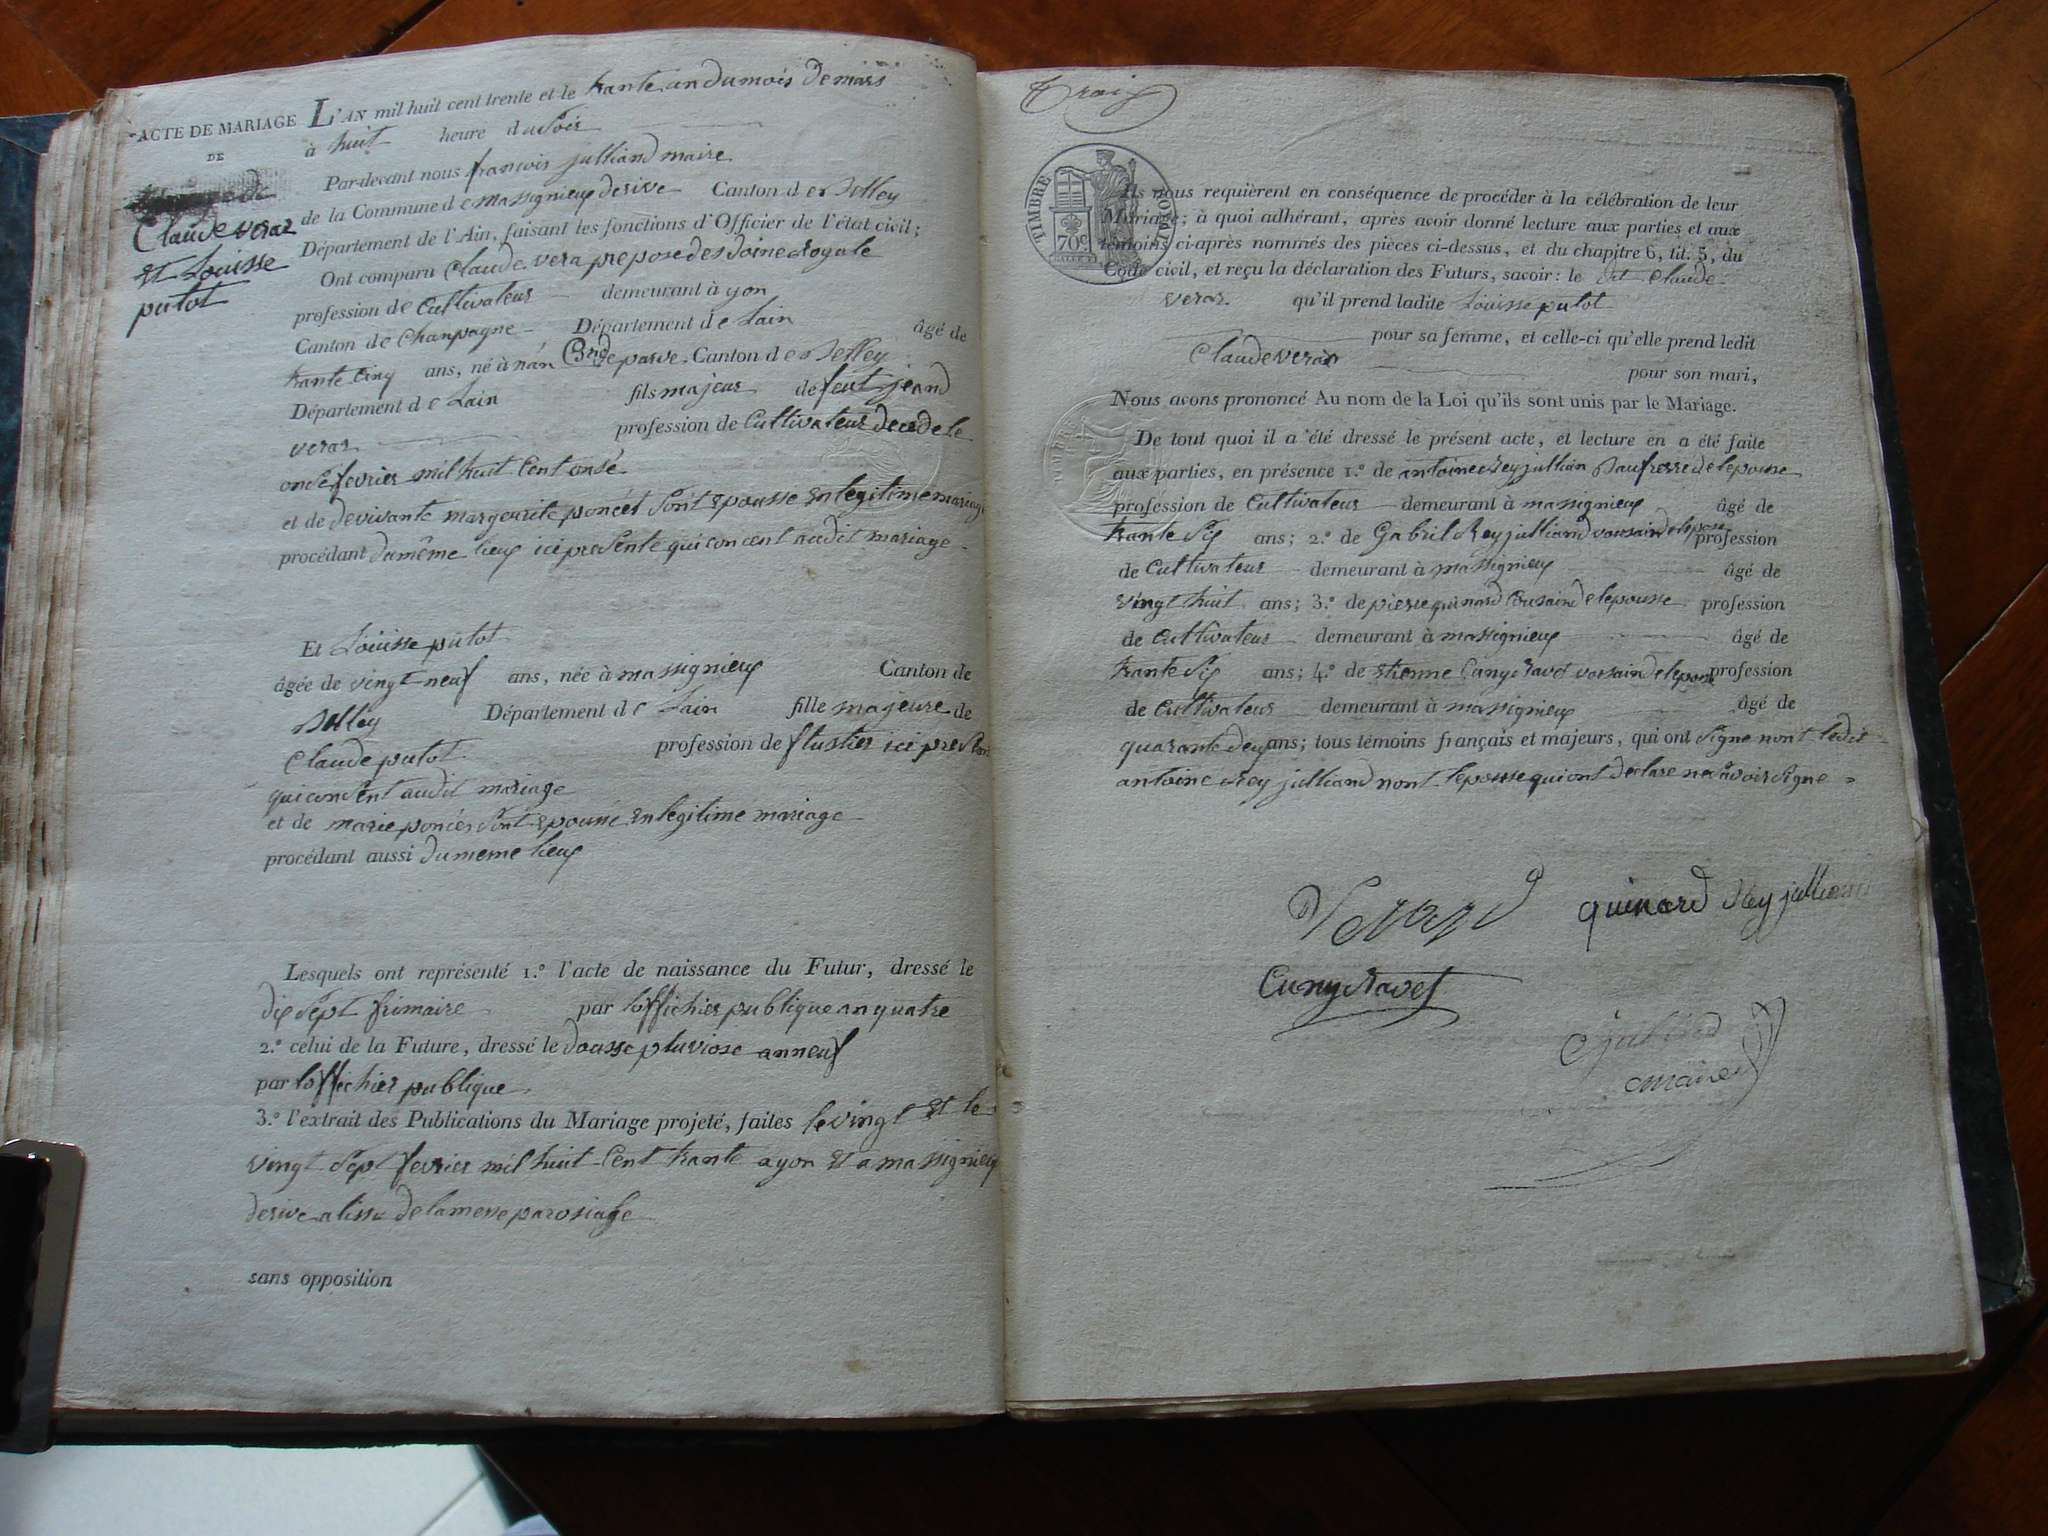 ACTE DE MARIAGE
DE
Claude verar
et Louisse
putot
L'AN mil huit cent trente et le trante un du mois de mars
à huit heure du Soir
Par-devant nous francois julliand maire
de la Commune de massignieux derive Canton de Belley
Département de l'Ain, faisant les fonctions d'Officier de l'état civil;
Ont comparu Claude vera prepose des doine Royale
profession de Cultivateur demeurant à yon
Canton de Chanpagne Département de Lain âgé de
trante Cinq ans, né à parve Canton de Belley
Département de Lain fils majeur de feut jean
verar profession de Cultivateur decede le
onse fevrier mil huit Cent onse
et de devivante margeurite poncet Sont epousse en legitime mariage
procédant du même lieux ici presente qui concent audit mariage
Et Louisse putot
âgée de vingt neuf ans, née à massignieux Canton de
Belley Département de Lain fille majeure de
Claude putot profession de flustier ici present
qui consent audit mariage
et de marie poncet Sont epousse en legitime mariage
procédant aussi du meme lieux
Lesquels ont représenté 1.º l'acte de naissance du Futur, dressé le
dix Sept frimaire par loffichier publique an quatre
2.º celui de la Future, dressé le dousse pluviose an neuf
par loffichier publique
3.º l'extrait des Publications du Mariage projeté, faites le vingt et le
vingt Sept fevrier mil huit Cent trante a yon et a massignieux
derive a lissu de la messe parosiale
sans opposition
Trois
TIMBRE ROYAL
70c
Ils nous requièrent en conséquence de procéder à la célébration de leur
Mariage; à quoi adhérant, après avoir donné lecture aux parties et aux
témoins ci-après nommés des pièces ci-dessus, et du chapitre 6, tit. 5, du
Code civil, et reçu la déclaration des Futurs, savoir: le dit Claude
verar qu'il prend ladite Louisse putot
pour sa femme, et celle-ci qu'elle prend ledit
Claude verar
pour son mari,
Nous avons prononcé Au nom de la Loi qu'ils sont unis par le Mariage.
De tout quoi il a été dressé le présent acte, et lecture en a été faite
aux parties, en présence 1.º de antoine Rey jullian Baufrerre de lepousse
profession de Cultivateur demeurant à massignieux âgé de
trante Six ans; 2.º de Gabril Rey julliand vousain de lepouse profession
de Cultivateur demeurant à massignieux âgé de
vingt huit ans; 3.º de pierre quinard Cousain de lepousse profession
de Cultivateur demeurant à massignieux âgé de
trante Six ans; 4.º de etienne Cuny Ravet voisain de lepouse profession
de Cultivateur demeurant à massignieux âgé de
quarante deux ans; tous témoins français et majeurs, qui ont Signe nont ledit
antoine Rey julliand nont lepousse qui ont declare ne Savoir Signe
Verard quinard Rey julliand
Cuny Ravet
julliand
maire